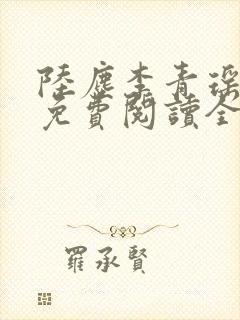 陸塵李青瑤
免費閱讀全
羅承賢